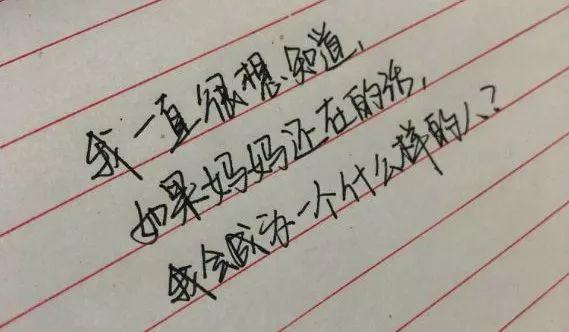 我一直很想知道,
如果妈妈还在的话,
我会成为一个什么样的人?